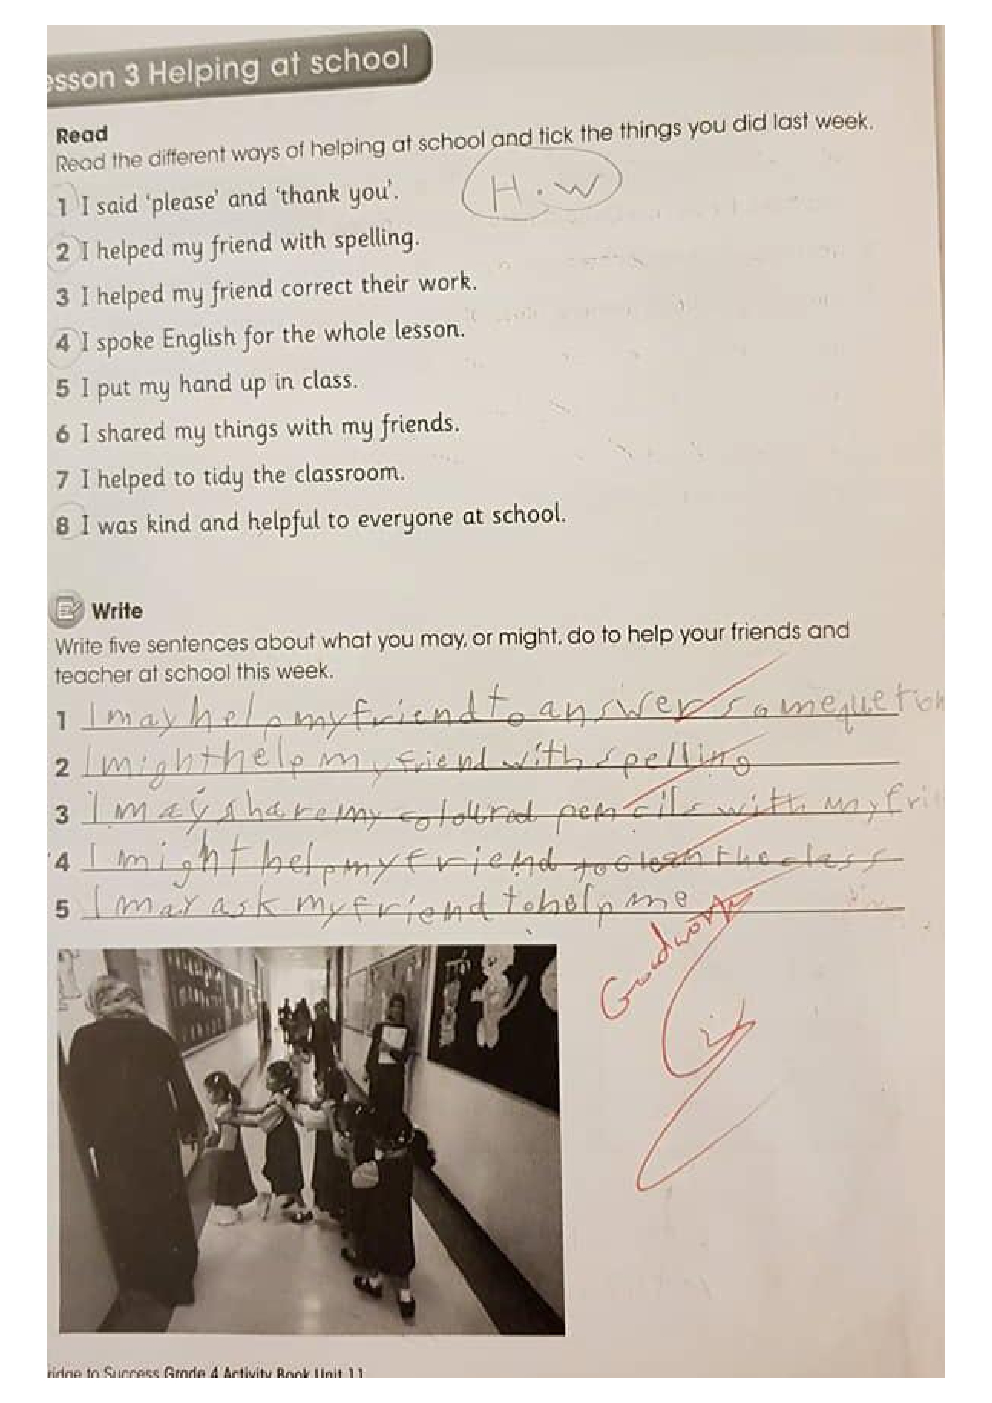 esson 3 Helping at school
Read
Read the different ways of helping at school and tick the things you did last week.
H.W
1 I said 'please' and 'thank you'.
2 I helped my friend with spelling.
3 I helped my friend correct their work.
4 I spoke English for the whole lesson.
5 I put my hand up in class.
6 I shared my things with my friends.
7 I helped to tidy the classroom.
8 I was kind and helpful to everyone at school.
Write
Write five sentences about what you may, or might, do to help your friends and
teacher at school this week.
1 I may help my friend to answer some quetion
2 I might help my friend with spelling
3 I may share my colourd pencils with my frie
4 I might help my friend to clean the class
5 I may ask my friend to help me
Good work
ridge to Success Grade 4 Activity Book Unit 11